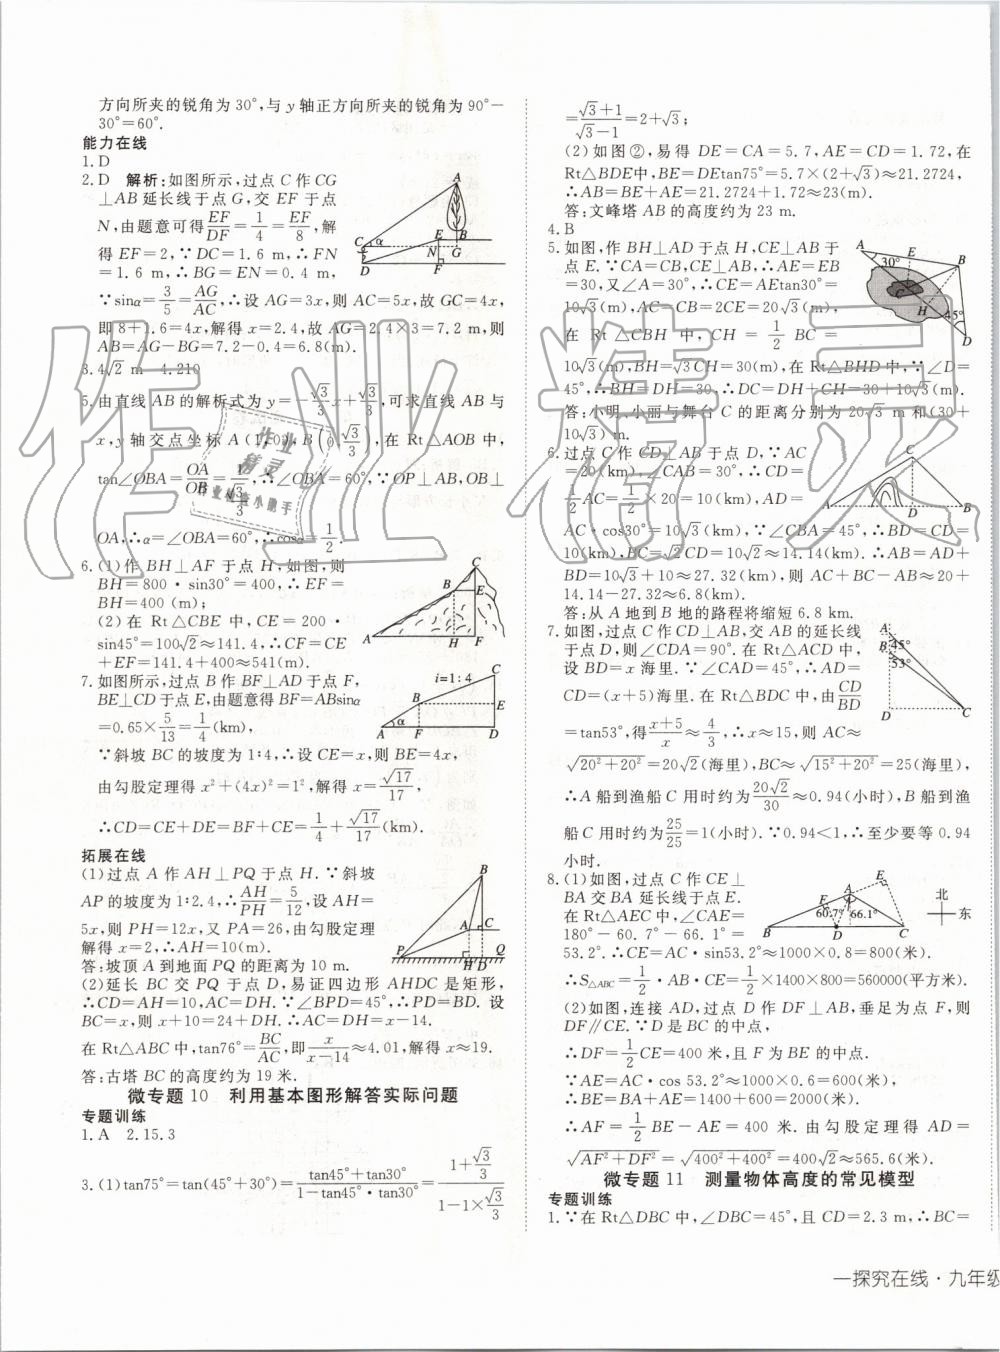 方向所夹的锐角为30°,与y轴正方向所夹的锐角为90°-
30°=60°.
能力在线
1.D
2.D 解析:如图所示,过点C作CG
⊥AB延长线于点G,交EF于点
N,由题意可得EF/DF=1/4=EF/8,解
得EF=2,∵DC=1.6 m,∴FN
=1.6 m,∴BG=EN=0.4 m,
∵sinα=3/5=AG/AC,∴设AG=3x,则AC=5x,故GC=4x,
即8+1.6=4x,解得x=2.4,故AG=2.4×3=7.2 m,则
AB=AG-BG=7.2-0.4=6.8(m).
3.4√2 m 4.210
5.由直线AB的解析式为y=-√3/3x+√3/3,可求直线AB与
x,y轴交点坐标A(1,0),B(0,√3/3),在Rt△AOB中,
tan∠OBA=OA/OB=1/(√3/3),∴∠OBA=60°,∵OP⊥
OA,∴α=∠OBA=60°,∴cosα=1/2.
6.(1)作BH⊥AF于点H,如图,则
BH=800·sin30°=400,∴EF=
BH=400 (m);
(2)在Rt△CBE中,CE=200·
sin45°=100√2≈141.4,∴CF=CE
+EF=141.4+400≈541(m).
7.如图所示,过点B作BF⊥AD于点F,
BE⊥CD于点E,由题意得BF=ABsinα
=0.65×5/13=1/4(km),
∵斜坡BC的坡度为1∶4,∴设CE=x,则BE=4x,
由勾股定理得x²+(4x)²=1²,解得x=√17/17,
∴CD=CE+DE=BF+CE=1/4+√17/17(km).
拓展在线
(1)过点A作AH⊥PQ于点H.∵斜坡
AP的坡度为1∶2.4,∴AH/PH=5/12,设AH=
5x,则PH=12x,又PA=26,由勾股定理
解得x=2,∴AH=10(m).
答:坡顶A到地面PQ的距离为10 m.
(2)延长BC交PQ于点D,易证四边形AHDC是矩形,
∴CD=AH=10,AC=DH.∵∠BPD=45°,∴PD=BD. 设
BC=x,则x+10=24+DH.∴AC=DH=x-14.
在Rt△ABC中,tan76°=BC/AC,即x/(x-14)≈4.01,解得x≈19.
答:古塔BC的高度约为19米.
微专题10 利用基本图形解答实际问题
专题训练
1.A 2.15.3
3.(1)tan75°=tan(45°+30°)=(tan45°+tan30°)/(1-tan45°·tan30°)=(1+√3/3)/(1-1×√3/3)
=(√3+1)/(√3-1)=2+√3;
(2)如图②,易得DE=CA=5.7,AE=CD=1.72,在
Rt△BDE中,BE=DEtan75°=5.7×(2+√3)≈21.2724,
∴AB=BE+AE=21.2724+1.72≈23(m).
答:文峰塔AB的高度约为23 m.
4.B
5.如图,作BH⊥AD于点H,CE⊥AB于
点E.∵CA=CB,CE⊥AB,∴AE=EB
=30,又∠A=30°,∴CE=AEtan30°=
10√3(m),AC=CB=2CE=20√3(m),
在Rt△CBH中,CH=1/2BC=
10√3(m),BH=√3CH=30(m),在Rt△BHD中,∵∠D=
45°,∴BH=DH=30,∴DC=DH+CH=30+10√3(m).
答:小明、小丽与舞台C的距离分别为20√3 m和(30+
10√3) m.
6.过点C作CD⊥AB于点D,∵AC
=20(km),∠CAB=30°,∴CD=
1/2AC=1/2×20=10(km),AD=
AC·cos30°=10√3(km).∵∠CBA=45°,∴BD=CD=
10(km),BC=√2CD=10√2≈14.14(km).∴AB=AD+
BD=10√3+10≈27.32(km),则AC+BC-AB≈20+
14.14-27.32≈6.8(km).
答:从A地到B地的路程将缩短6.8 km.
7.如图,过点C作CD⊥AB,交AB的延长线
于点D,则∠CDA=90°.在Rt△ACD中,
设BD=x海里.∵∠CAD=45°,∴AD=
CD=(x+5)海里.在Rt△BDC中,由CD/BD
=tan53°,得(x+5)/x≈4/3,∴x≈15,则AC≈
√(20²+20²)=20√2(海里),BC≈√(15²+20²)=25(海里),
∴A船到渔船C用时约为20√2/30≈0.94(小时),B船到渔
船C用时约为25/25=1(小时).∵0.94<1,∴至少要等0.94
小时.
8.(1)如图,过点C作CE⊥
BA交BA延长线于点E.
在Rt△AEC中,∠CAE=
180°-60.7°-66.1°=
53.2°.∴CE=AC·sin53.2°≈1000×0.8=800(米).
∴S△ABC=1/2·AB·CE=1/2×1400×800=560000(平方米).
(2)如图,连接AD,过点D作DF⊥AB,垂足为点F,则
DF∥CE.∵D是BC的中点,
∴DF=1/2CE=400米,且F为BE的中点.
∵AE=AC·cos 53.2°≈1000×0.6=600(米),
∴BE=BA+AE=1400+600=2000(米).
∴AF=1/2BE-AE=400米.由勾股定理得AD=
√(AF²+DF²)=√(400²+400²)=400√2≈565.6(米).
微专题11 测量物体高度的常见模型
专题训练
1.∵在Rt△DBC中,∠DBC=45°,且CD=2.3 m,∴BC=
一探究在线·九年级
作业精灵